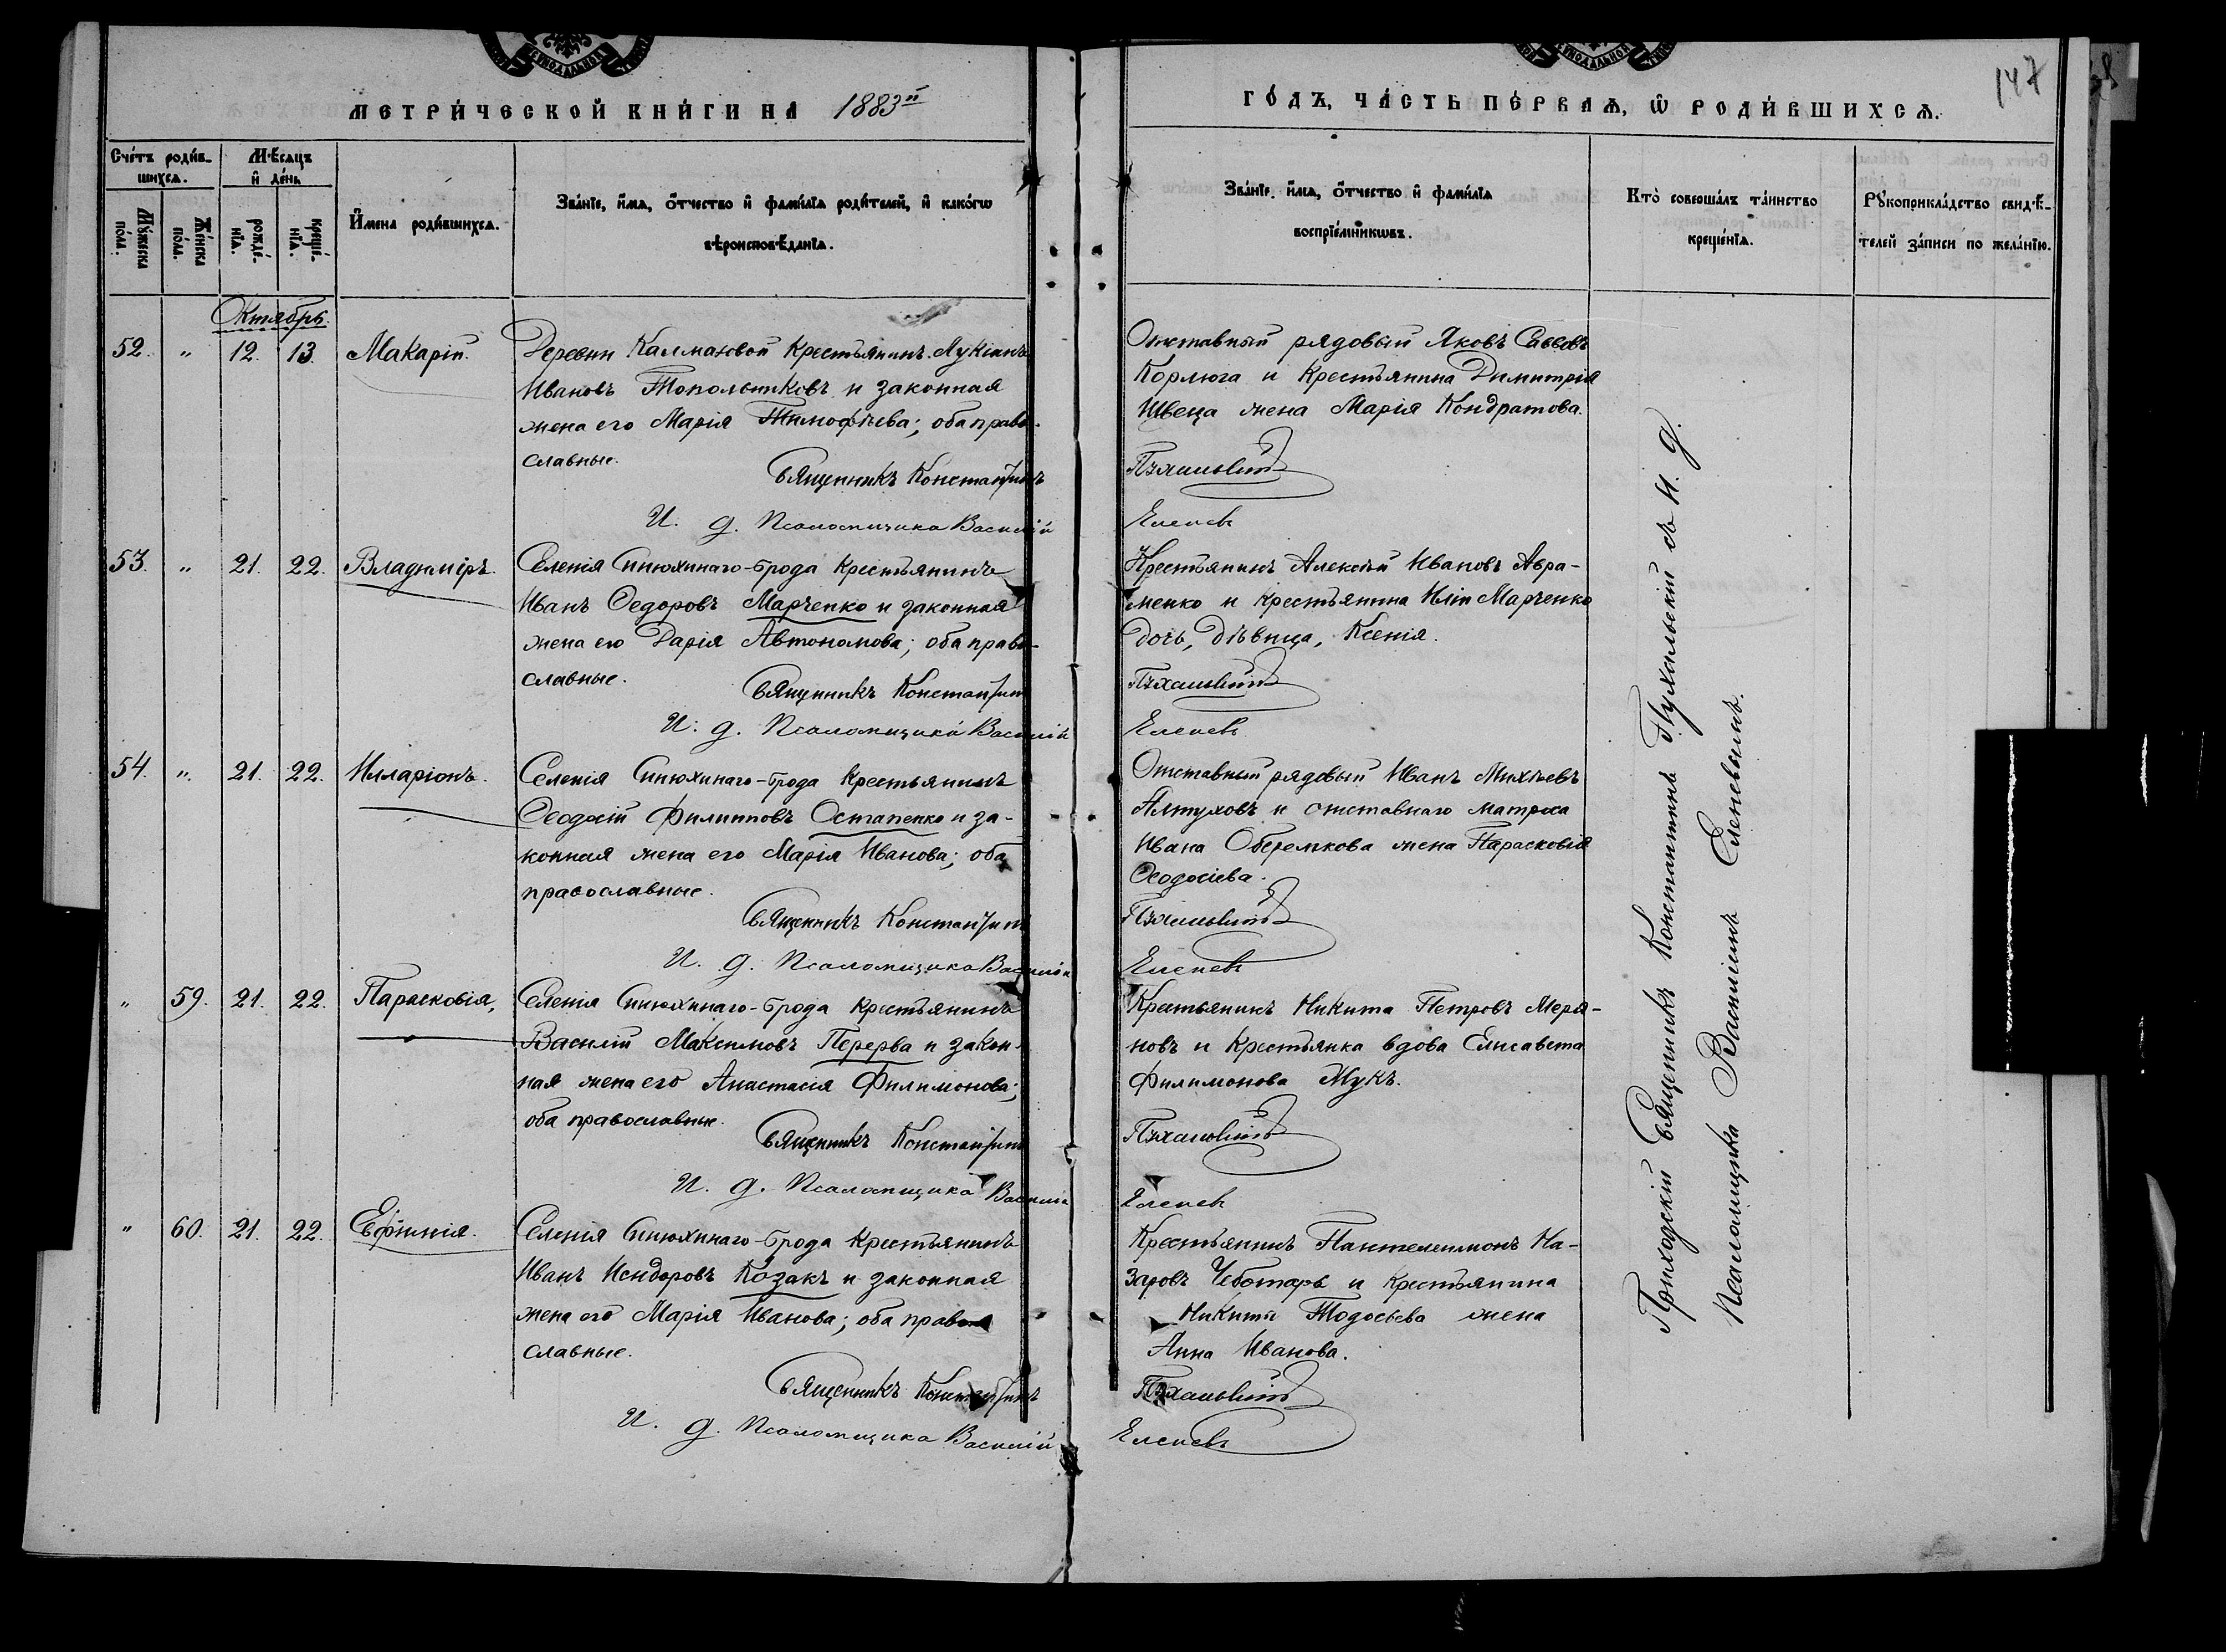 СѴНОДАЛЬНОЙ
СѴНОДАЛЬНОЙ
МЕТРИ́ЧЕСКОЙ КНИ́ГИ НА 1883й
ГО́ДЪ, ЧА́СТЬ ПЕ́РВАѦ, Ѡ РОДИ́ВШИХСѦ.
147
Сче́тъ роди́в-
шихсѧ.
Мꙋ́жеска
по́ла.
Же́нска
по́ла.
Мѣ́сѧцъ
и҆ де́нь
рожде́-
нїѧ.
креще́-
нїѧ.
И҆мена̀ роди́вшихсѧ.
Зва́нїе, и҆́мѧ, ѻ҆́тчество и҆ фами́лїѧ роди́телей, и҆ како́гѡ
вѣроисповѣ́данїѧ.
Зва́нїе, и҆́мѧ, ѻ҆́тчество и҆ фами́лїѧ
воспрїе́мникѡвъ.
Кто̀ соверша́лъ та́инство
креще́нїѧ.
Рꙋкоприкла́дство свидѣ́-
телей за́писи по жела́нїю.
Октябрь.
52. " 12. 13. Макарій.
Деревни Калмазовой Крестьянинъ Лукіанъ
Ивановъ Топольниковъ и законная
жена его Марія Тимофѣева; оба право-
славные.
Священникъ Константинъ
И. д. Псаломщика Василій
Отставный рядовый Яковъ Саввовъ
Корлюга и Крестьянина Димитрія
Швеца жена Марія Кондратова.
Пухальскій
Еленевъ
53. " 21. 22. Владиміръ.
Селенія Синюхинаго-брода Крестьянинъ
Иванъ Ѳедоровъ Марченко и законная
жена его Дарія Автономова; оба право-
славные.
Священникъ Константинъ
И. д. Псаломщика Василій
Крестьянинъ Алексѣй Ивановъ Авра-
менко и крестьянина Иліи Марченко
дочь, дѣвица, Ксенія.
Пухальскій
Еленевъ
54. " 21. 22. Илларіонъ.
Селенія Синюхинаго-брода Крестьянинъ
Ѳеодосій Филипповъ Остапенко и за-
конная жена его Марія Иванова; оба
православные.
Священникъ Константинъ
И. д. Псаломщика Василій
Отставный рядовый Иванъ Михѣевъ
Алтуховъ и отставнаго матроса
Ивана Оберемкова жена Парасковія
Ѳеодосіева.
Пухальскій
Еленевъ
" 59. 21. 22. Парасковія,
Селенія Синюхинаго-брода крестьянинъ
Василій Максимовъ Перерва и закон-
ная жена его Анастасія Филимонова;
оба православные.
Священникъ Константинъ
И. д. Псаломщика Василій
Крестьянинъ Никита Петровъ Меря-
новъ и Крестьянка вдова Елисавета
Филимонова Жукъ.
Пухальскій
Еленевъ
" 60. 21. 22. Евфимія.
Селенія Синюхинаго-брода Крестьянинъ
Иванъ Исидоровъ Козакъ и законная
жена его Марія Иванова; оба право-
славные.
Священникъ Константинъ
И. д. Псаломщика Василій
Крестьянинъ Пантелеимонъ На-
заровъ Чеботарь и Крестьянина
Никиты Тодосьева жена
Анна Иванова.
Пухальскій
Еленевъ
Приходскій Священникъ Константинъ Пухальскій съ И. д.
Псаломщика Василіемъ Еленевымъ.